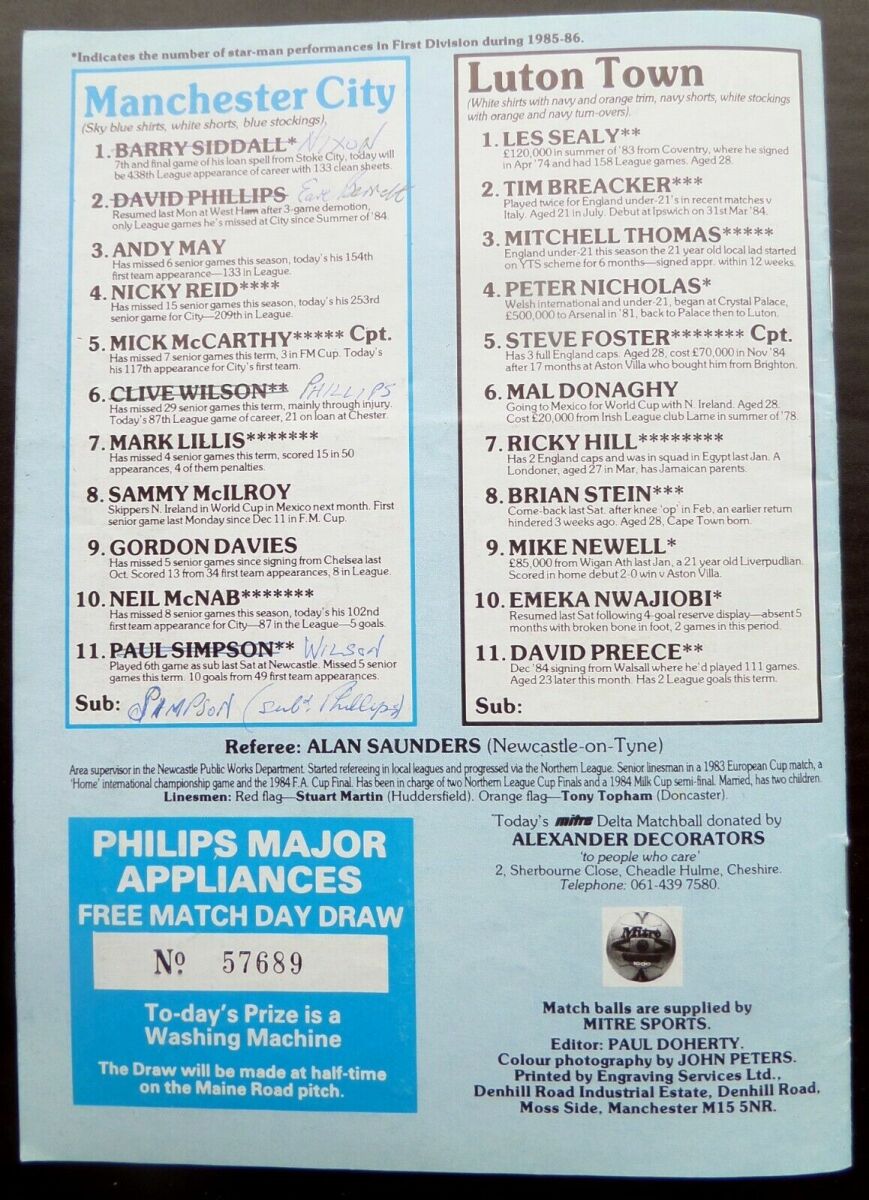 *Indicates the number of star-man performances in First Division during 1985-86.
Manchester City
(Sky blue shirts, white shorts, blue stockings),
1. BARRY SIDDALL* NIXON
7th and final game of his loan spell from Stoke City, today will
be 438th League appearance of career with 133 clean sheets.
2. DAVID PHILLIPS Earl Barrett
Resumed last Mon at West Ham after 3-game demotion,
only League games he's missed at City since Summer of '84.
3. ANDY MAY
Has missed 6 senior games this season, today's his 154th
first team appearance—133 in League.
4. NICKY REID****
Has missed 15 senior games this season, today's his 253rd
senior game for City—209th in League.
5. MICK McCARTHY***** Cpt.
Has missed 7 senior games this term, 3 in FM Cup. Today's
his 117th appearance for City's first team.
6. CLIVE WILSON** PHILLIPS
Has missed 29 senior games this term, mainly through injury.
Today's 87th League game of career, 21 on loan at Chester.
7. MARK LILLIS*******
Has missed 4 senior games this term, scored 15 in 50
appearances, 4 of them penalties.
8. SAMMY McILROY
Skippers N. Ireland in World Cup in Mexico next month. First
senior game last Monday since Dec 11 in F.M. Cup.
9. GORDON DAVIES
Has missed 5 senior games since signing from Chelsea last
Oct. Scored 13 from 34 first team appearances, 8 in League.
10. NEIL McNAB*******
Has missed 8 senior games this season, today's his 102nd
first team appearance for City—87 in the League—5 goals.
11. PAUL SIMPSON** WILSON
Played 6th game as sub last Sat at Newcastle. Missed 5 senior
games this term. 10 goals from 49 first team appearances.
Sub: SIMPSON (subd. Phillips)
Luton Town
(White shirts with navy and orange trim, navy shorts, white stockings
with orange and navy turn-overs).
1. LES SEALY**
£120,000 in summer of '83 from Coventry, where he signed
in Apr '74 and had 158 League games. Aged 28.
2. TIM BREACKER***
Played twice for England under-21's in recent matches v
Italy. Aged 21 in July. Debut at Ipswich on 31st Mar '84.
3. MITCHELL THOMAS*****
England under-21 this season the 21 year old local lad started
on YTS scheme for 6 months—signed appr. within 12 weeks.
4. PETER NICHOLAS*
Welsh international and under-21, began at Crystal Palace,
£500,000 to Arsenal in '81, back to Palace then to Luton.
5. STEVE FOSTER******* Cpt.
Has 3 full England caps. Aged 28, cost £70,000 in Nov '84
after 17 months at Aston Villa who bought him from Brighton.
6. MAL DONAGHY
Going to Mexico for World Cup with N. Ireland. Aged 28.
Cost £20,000 from Irish League club Larne in summer of '78.
7. RICKY HILL********
Has 2 England caps and was in squad in Egypt last Jan. A
Londoner, aged 27 in Mar, has Jamaican parents.
8. BRIAN STEIN***
Come-back last Sat. after knee 'op' in Feb, an earlier return
hindered 3 weeks ago. Aged 28, Cape Town born.
9. MIKE NEWELL*
£85,000 from Wigan Ath last Jan, a 21 year old Liverpudlian.
Scored in home debut 2-0 win v Aston Villa.
10. EMEKA NWAJIOBI*
Resumed last Sat following 4-goal reserve display—absent 5
months with broken bone in foot, 2 games in this period.
11. DAVID PREECE**
Dec '84 signing from Walsall where he'd played 111 games.
Aged 23 later this month. Has 2 League goals this term.
Sub:
Referee: ALAN SAUNDERS (Newcastle-on-Tyne)
Area supervisor in the Newcastle Public Works Department. Started refereeing in local leagues and progressed via the Northern League. Senior linesman in a 1983 European Cup match, a
'Home' international championship game and the 1984 F.A. Cup Final. Has been in charge of two Northern League Cup Finals and a 1984 Milk Cup semi-final. Married, has two children.
Linesmen: Red flag—Stuart Martin (Huddersfield). Orange flag—Tony Topham (Doncaster).
PHILIPS MAJOR
APPLIANCES
FREE MATCH DAY DRAW
Nº 57689
To-day's Prize is a
Washing Machine
The Draw will be made at half-time
on the Maine Road pitch.
Today's mitre Delta Matchball donated by
ALEXANDER DECORATORS
'to people who care'
2, Sherbourne Close, Cheadle Hulme, Cheshire.
Telephone: 061-439 7580.
Mitre
Match balls are supplied by
MITRE SPORTS.
Editor: PAUL DOHERTY.
Colour photography by JOHN PETERS.
Printed by Engraving Services Ltd.,
Denhill Road Industrial Estate, Denhill Road,
Moss Side, Manchester M15 5NR.